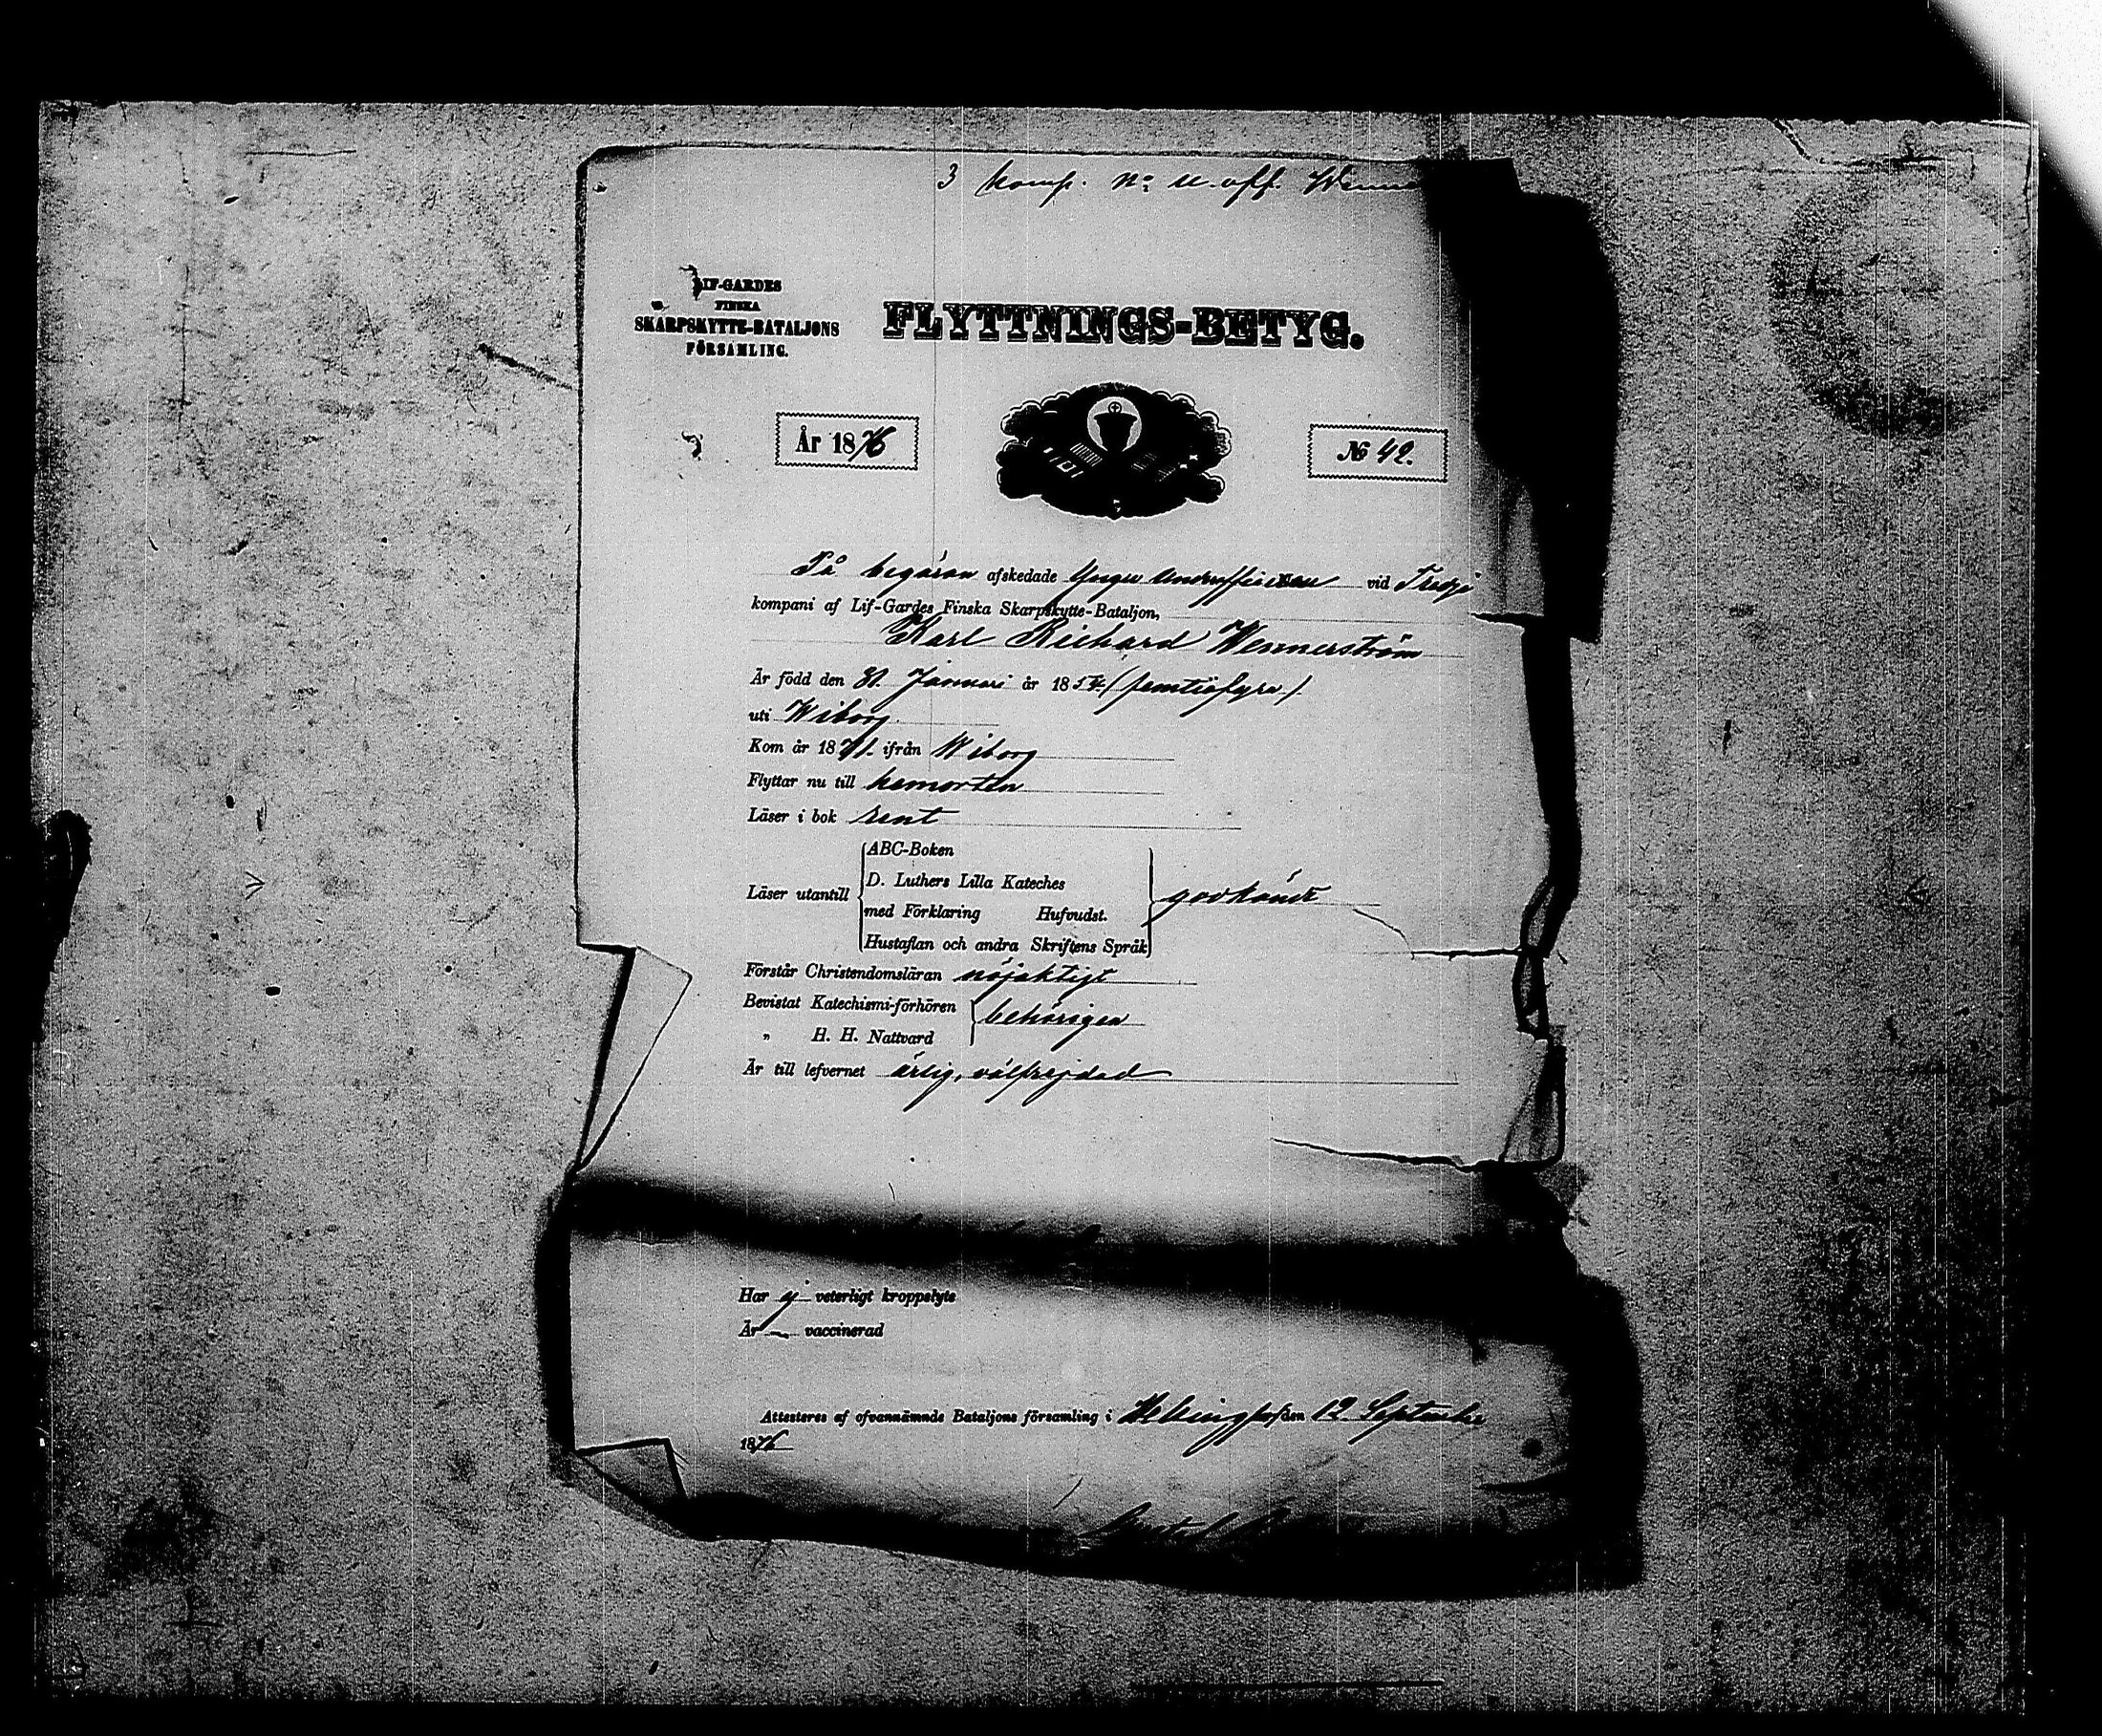 3 komp. n: u. off. Wenne
LIF-GARDES
FINSKA
SKARPSKYTTE-BATALJONS
FÖRSAMLING.
FLYTTNINGS-BETYG.
År 1876
№ 42.
På begäran afskedade Yngre Underofficeren vid Tredje
kompani af Lif-Gardes Finska Skarpskytte-Bataljon,
Karl Richard Wennerström
Är född den 31. Januari år 1854. (femtiofyra).
uti Wiborg
Kom år 1871. ifrån Wiborg
Flyttar nu till hemorten
Läser i bok rent
Läser utantill
ABC-Boken
D. Luthers Lilla Kateches
med Förklaring Hufvudst.
Hustaflan och andra Skriftens Språk
godkändt
Förstår Christendomsläran nöjaktigt
Bevistat Katechismi-förhören
„ H. H. Nattvard
behörigen
Är till lefvernet ärlig, välfrejdad
Har ej veterligt kroppslyte
Är — vaccinerad
Attesteres af ofvannämnde Bataljons församling i Helsingfors den 12 September
1876